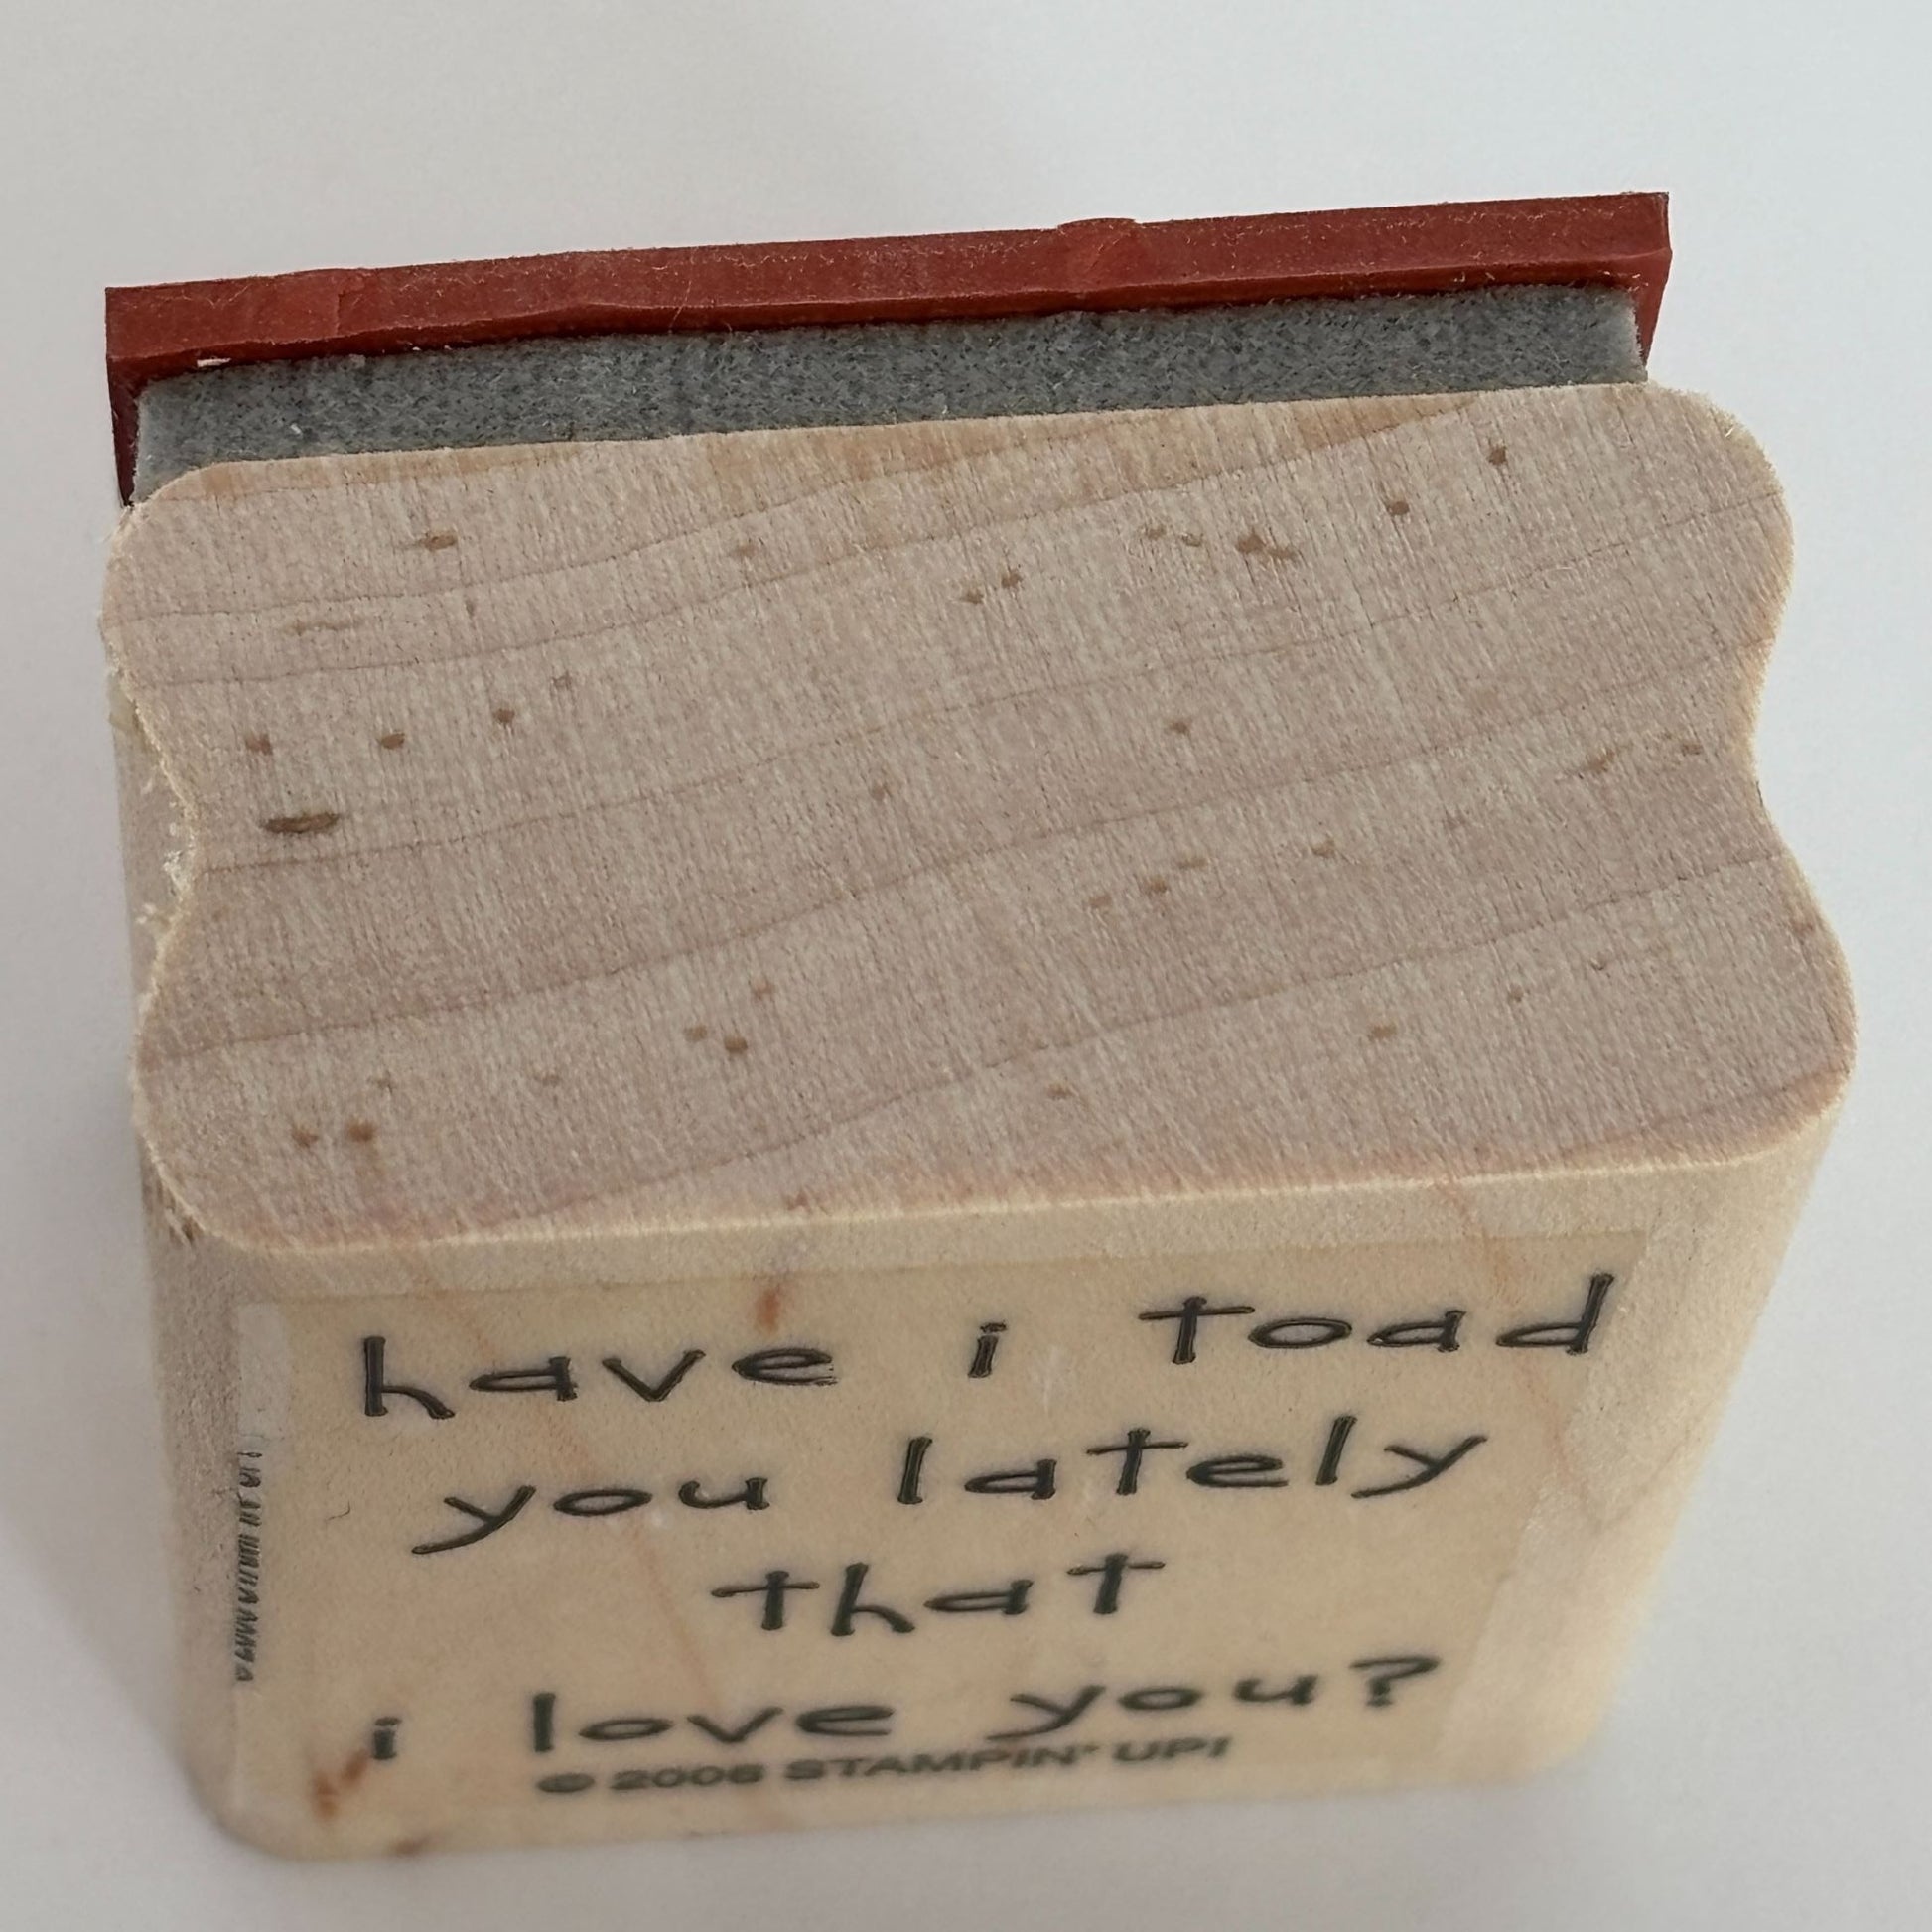 have i toad
you lately
that
i love you?
© 2008 STAMPIN' UP!